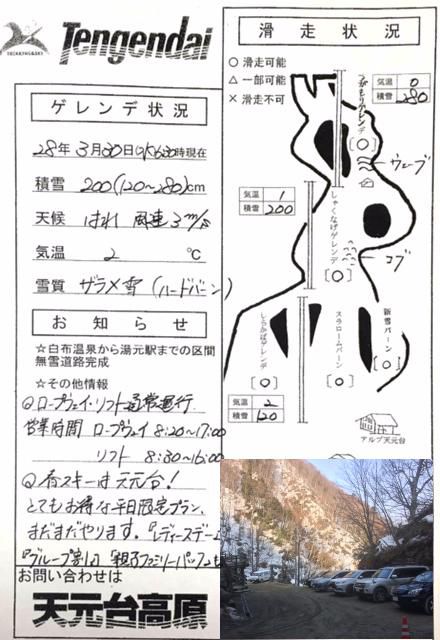 Tengendai
ゲレンデ状況
28年3月30日(水)6:30時現在
積雪 200(120~280)cm
天候 はれ 風速3m/s
気温 2 ℃
雪質 ザラメ雪(ハードバーン)
お知らせ
☆白布温泉から湯元駅までの区間
無雪道路完成
☆その他情報
◎ロープウェイ・リフト通常運行
営業時間 ロープウェイ 8:20~17:00
リフト 8:30~16:00
◎春スキーは天元台!
とてもお得な平日限定プラン、
まだまだやります。『レディースデー』
『グループ割』『親子ファミリーパック』も
お問い合わせは
天元台高原
滑走状況
○ 滑走可能
△ 一部可能
× 滑走不可
気温 0
積雪 280
つがもりゲレンデ
[○]
ウェーブ
気温 1
積雪 200
しゃくなげゲレンデ
[○]
コブ
しらかばゲレンデ
[○]
スラロームバーン
[○]
新雪バーン
[○]
気温 2
積雪 120
アルブ天元台